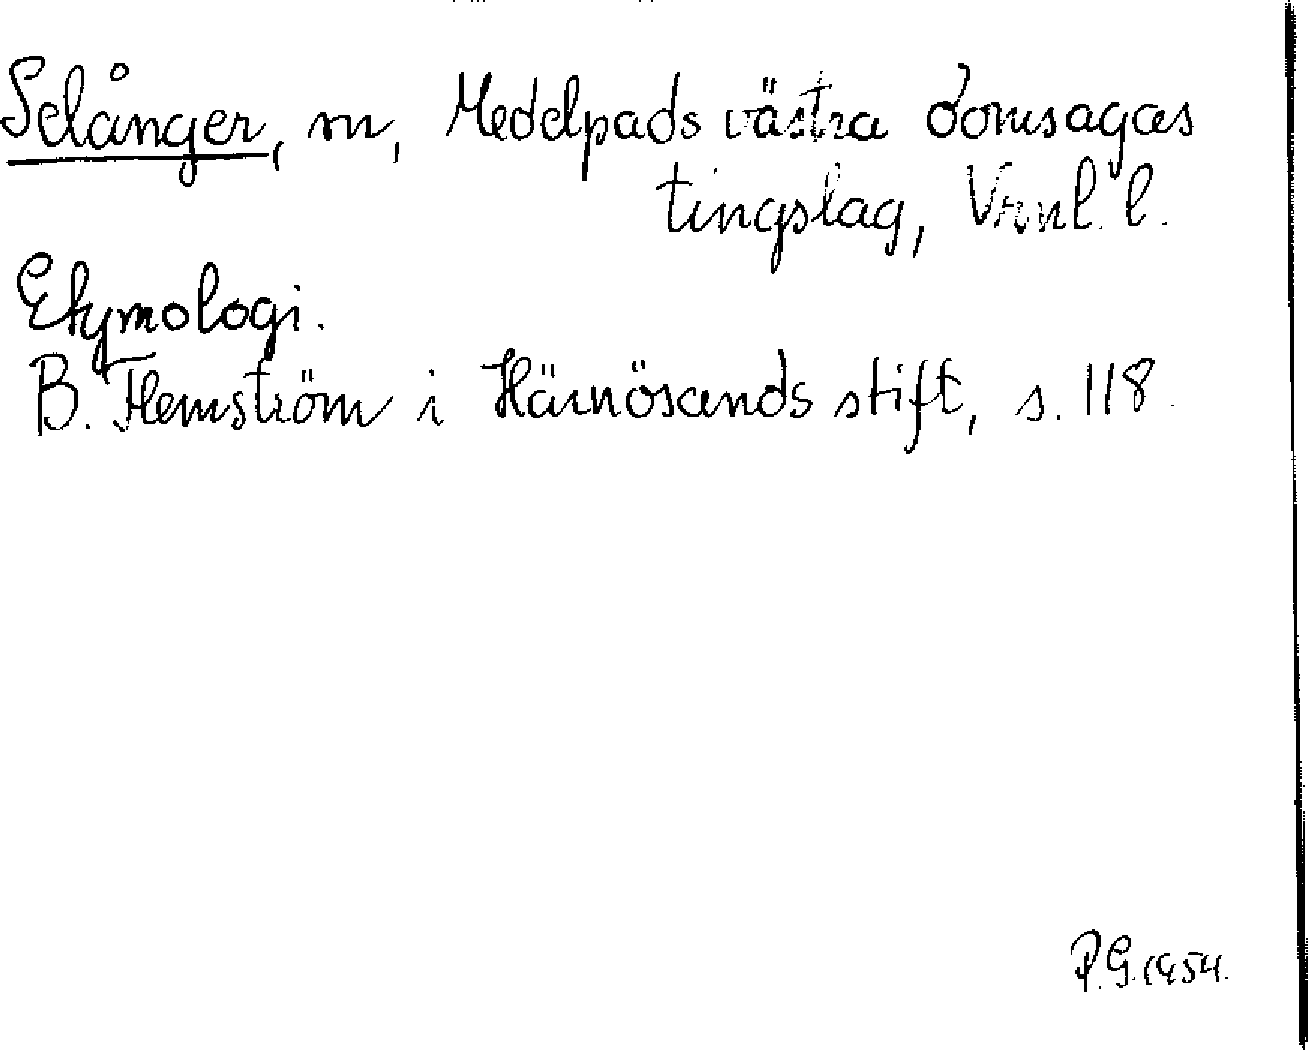 Selånger, sn, Medelpads västra domsagas
tingslag, Vrnl. l.
Etymologi.
B. Flemström i Härnösands stift, s. 118.
P.G. 1954.